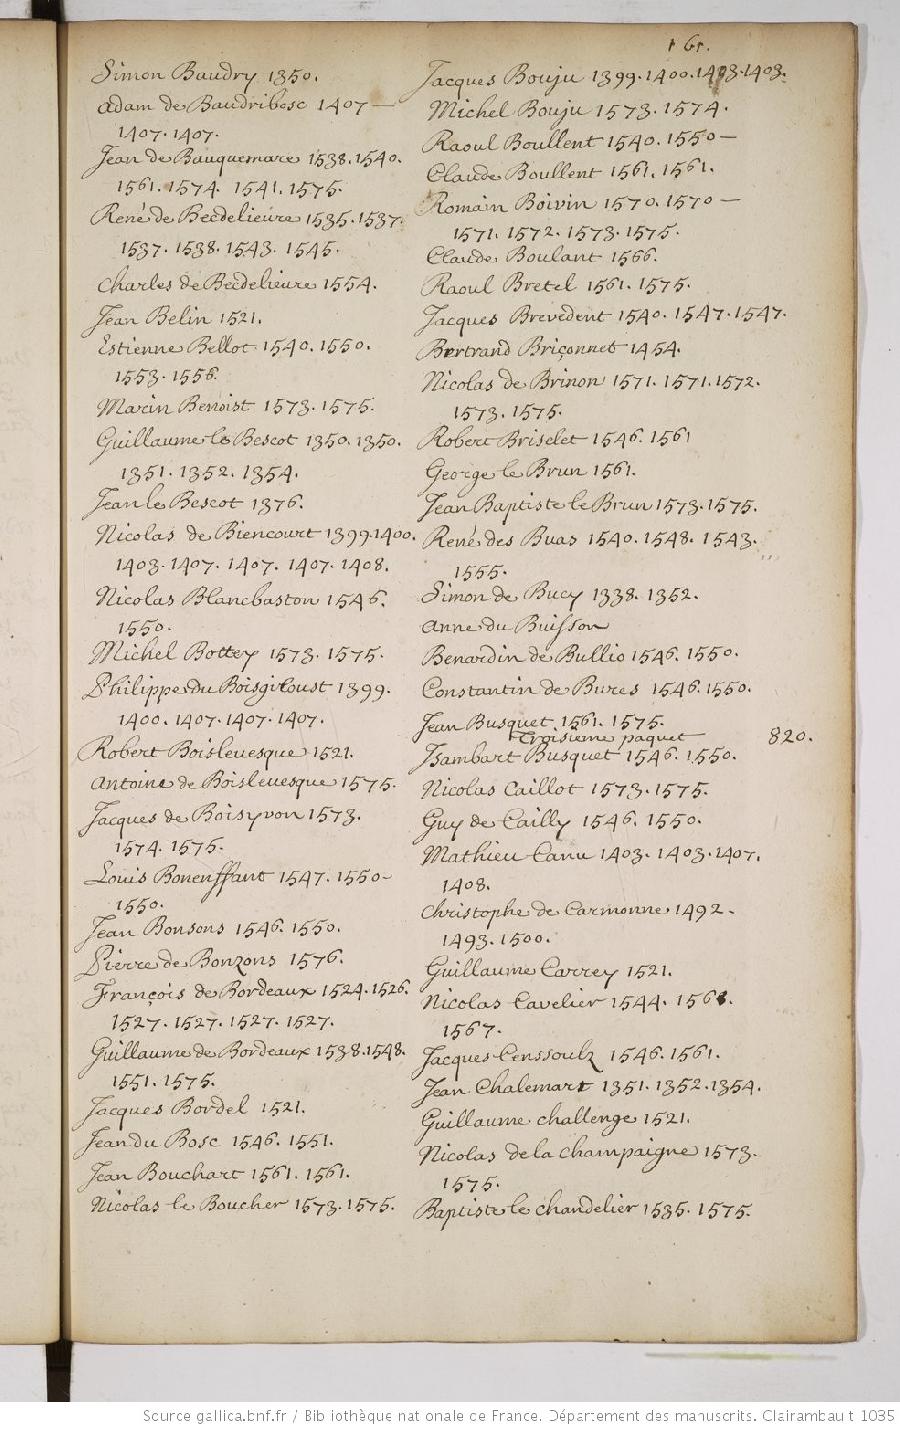 161.
Simon Baudry 1350.
Adam de Baudribosc 1407 —
1407. 1407.
Jean de Bauquemare 1538. 1540.
1561. 1574. 1541. 1575.
René de Becdelieure 1535. 1537.
1537. 1538. 1543. 1545.
Charles de Becdelieure 1554.
Jean Belin 1521.
Estienne Bellot 1540. 1550.
1553. 1556.
Marin Benoist 1573. 1575.
Guillaume le Bescot 1350. 1350.
1351. 1352. 1354.
Jean le Bescot 1376.
Nicolas de Biencourt 1399. 1400.
1403. 1407. 1407. 1407. 1408.
Nicolas Blancbaston 1546.
1550.
Michel Bottey 1573. 1575.
Philippe du Boisgiloust 1399.
1400. 1407. 1407. 1407.
Robert Boisleuesque 1521.
Antoine de Boisleuesque 1575.
Jacques de Boisyvon 1573.
1574. 1575.
Louis Bonenffant 1547. 1550 –
1550.
Jean Bonsons 1546. 1550.
Pierre de Bonzons 1576.
François de Bordeaux 1524. 1526.
1527. 1527. 1527. 1527.
Guillaume de Bordeaux 1538. 1548.
1551. 1575.
Jacques Bordel 1521.
Jean du Bosc 1546. 1551.
Jean Bouchart 1561. 1561.
Nicolas le Boucher 1573. 1575.
Jacques Bouju 1399. 1400. 1403. 1403.
Michel Bouju 1573. 1574.
Raoul Boullent 1540. 1550 —
Claude Boullent 1561. 1561.
Romain Boivin 1570. 1570 —
1571. 1572. 1573. 1575.
Claude Boulant 1566.
Raoul Bretel 1561. 1575.
Jacques Brevedent 1540. 1547. 1547.
Bertrand Briçonnet 1454.
Nicolas de Brinon 1571. 1571. 1572.
1573. 1575.
Robert Briselet 1546. 1561
George le Brun 1561.
Jean Baptiste le Brun 1573. 1575.
René des Buas 1540. 1548. 1543.
1555.
Simon de Bucy 1338. 1352.
Anne du Buisson
Benardin de Bullio 1546. 1550.
Constantin de Bures 1546. 1550.
Jean Busquet 1561. 1575.
Troisieme paquet 820.
Isambart Busquet 1546. 1550.
Nicolas Caillot 1573. 1575.
Guy de Cailly 1546. 1550.
Mathieu Canu 1403. 1403. 1407.
1408.
Christophe de Carmonne 1492.
1493. 1500.
Guillaume Carrey 1521.
Nicolas Cavelier 1544. 1561.
1567.
Jacques Censsoulz 1546. 1561.
Jean Chalemart 1351. 1352. 1354.
Guillaume Challenge 1521.
Nicolas de la Champaigne 1573.
1575.
Baptiste le Chandelier 1535. 1575.
Source gallica.bnf.fr / Bibliothèque nationale de France. Département des manuscrits. Clairambault 1035